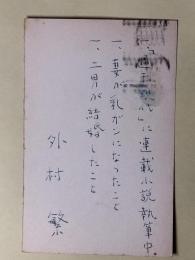 に連載小説執筆中。
一、妻が乳ガンになったこと
一、二男が結婚したこと
外村 繁